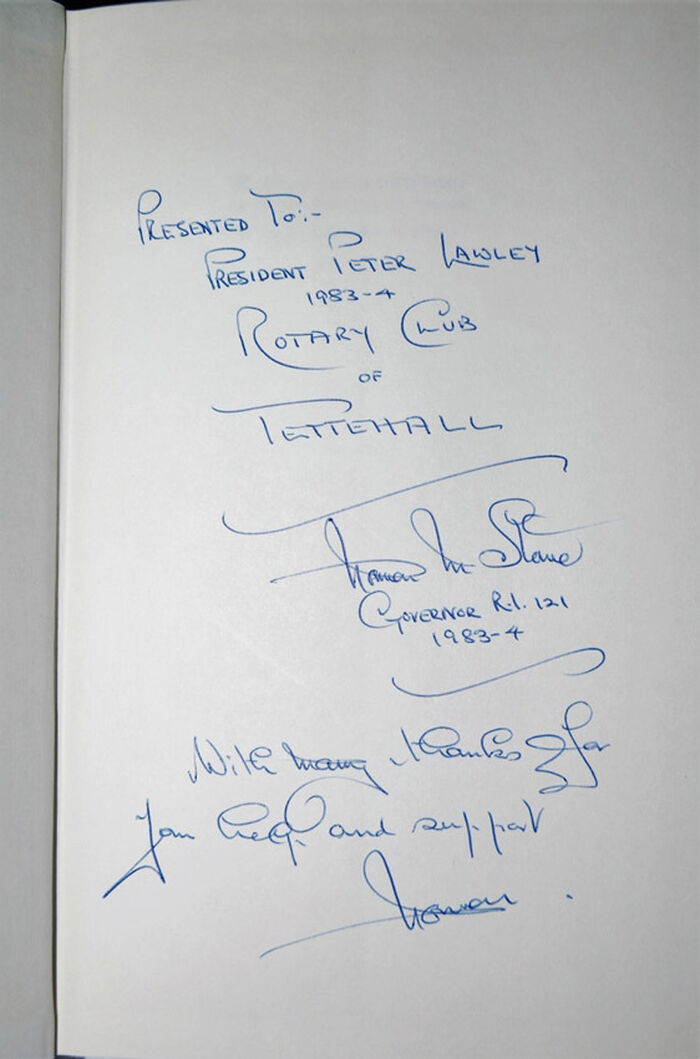 PRESENTED TO:-
PRESIDENT PETER LAWLEY
1983-4
ROTARY CLUB
OF
TETTEHALL
Norman M Stone
GOVERNOR R.I. 121
1983-4
With many thanks for
your help and support
Norman.